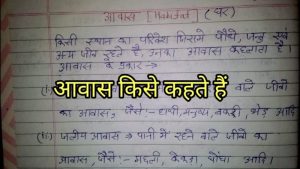 आवास [Habitat] (घर)
किसी स्थान का परिवेश जिसमें पौधे, जन्तु एवं
अन्य जीव रहते है, उनका आवास कहलाता है।
आवास के प्रकार →
आवास किसे कहते हैं
वाले जीवों
का आवास, जैसे:- हाथी, मनुष्य, बकरी, भेड़ आदि
(ii) जलीय आवास → पानी में रहने वाले जीवों का
आवास, जैसे:- मछली, केकड़ा, घोंघा आदि।